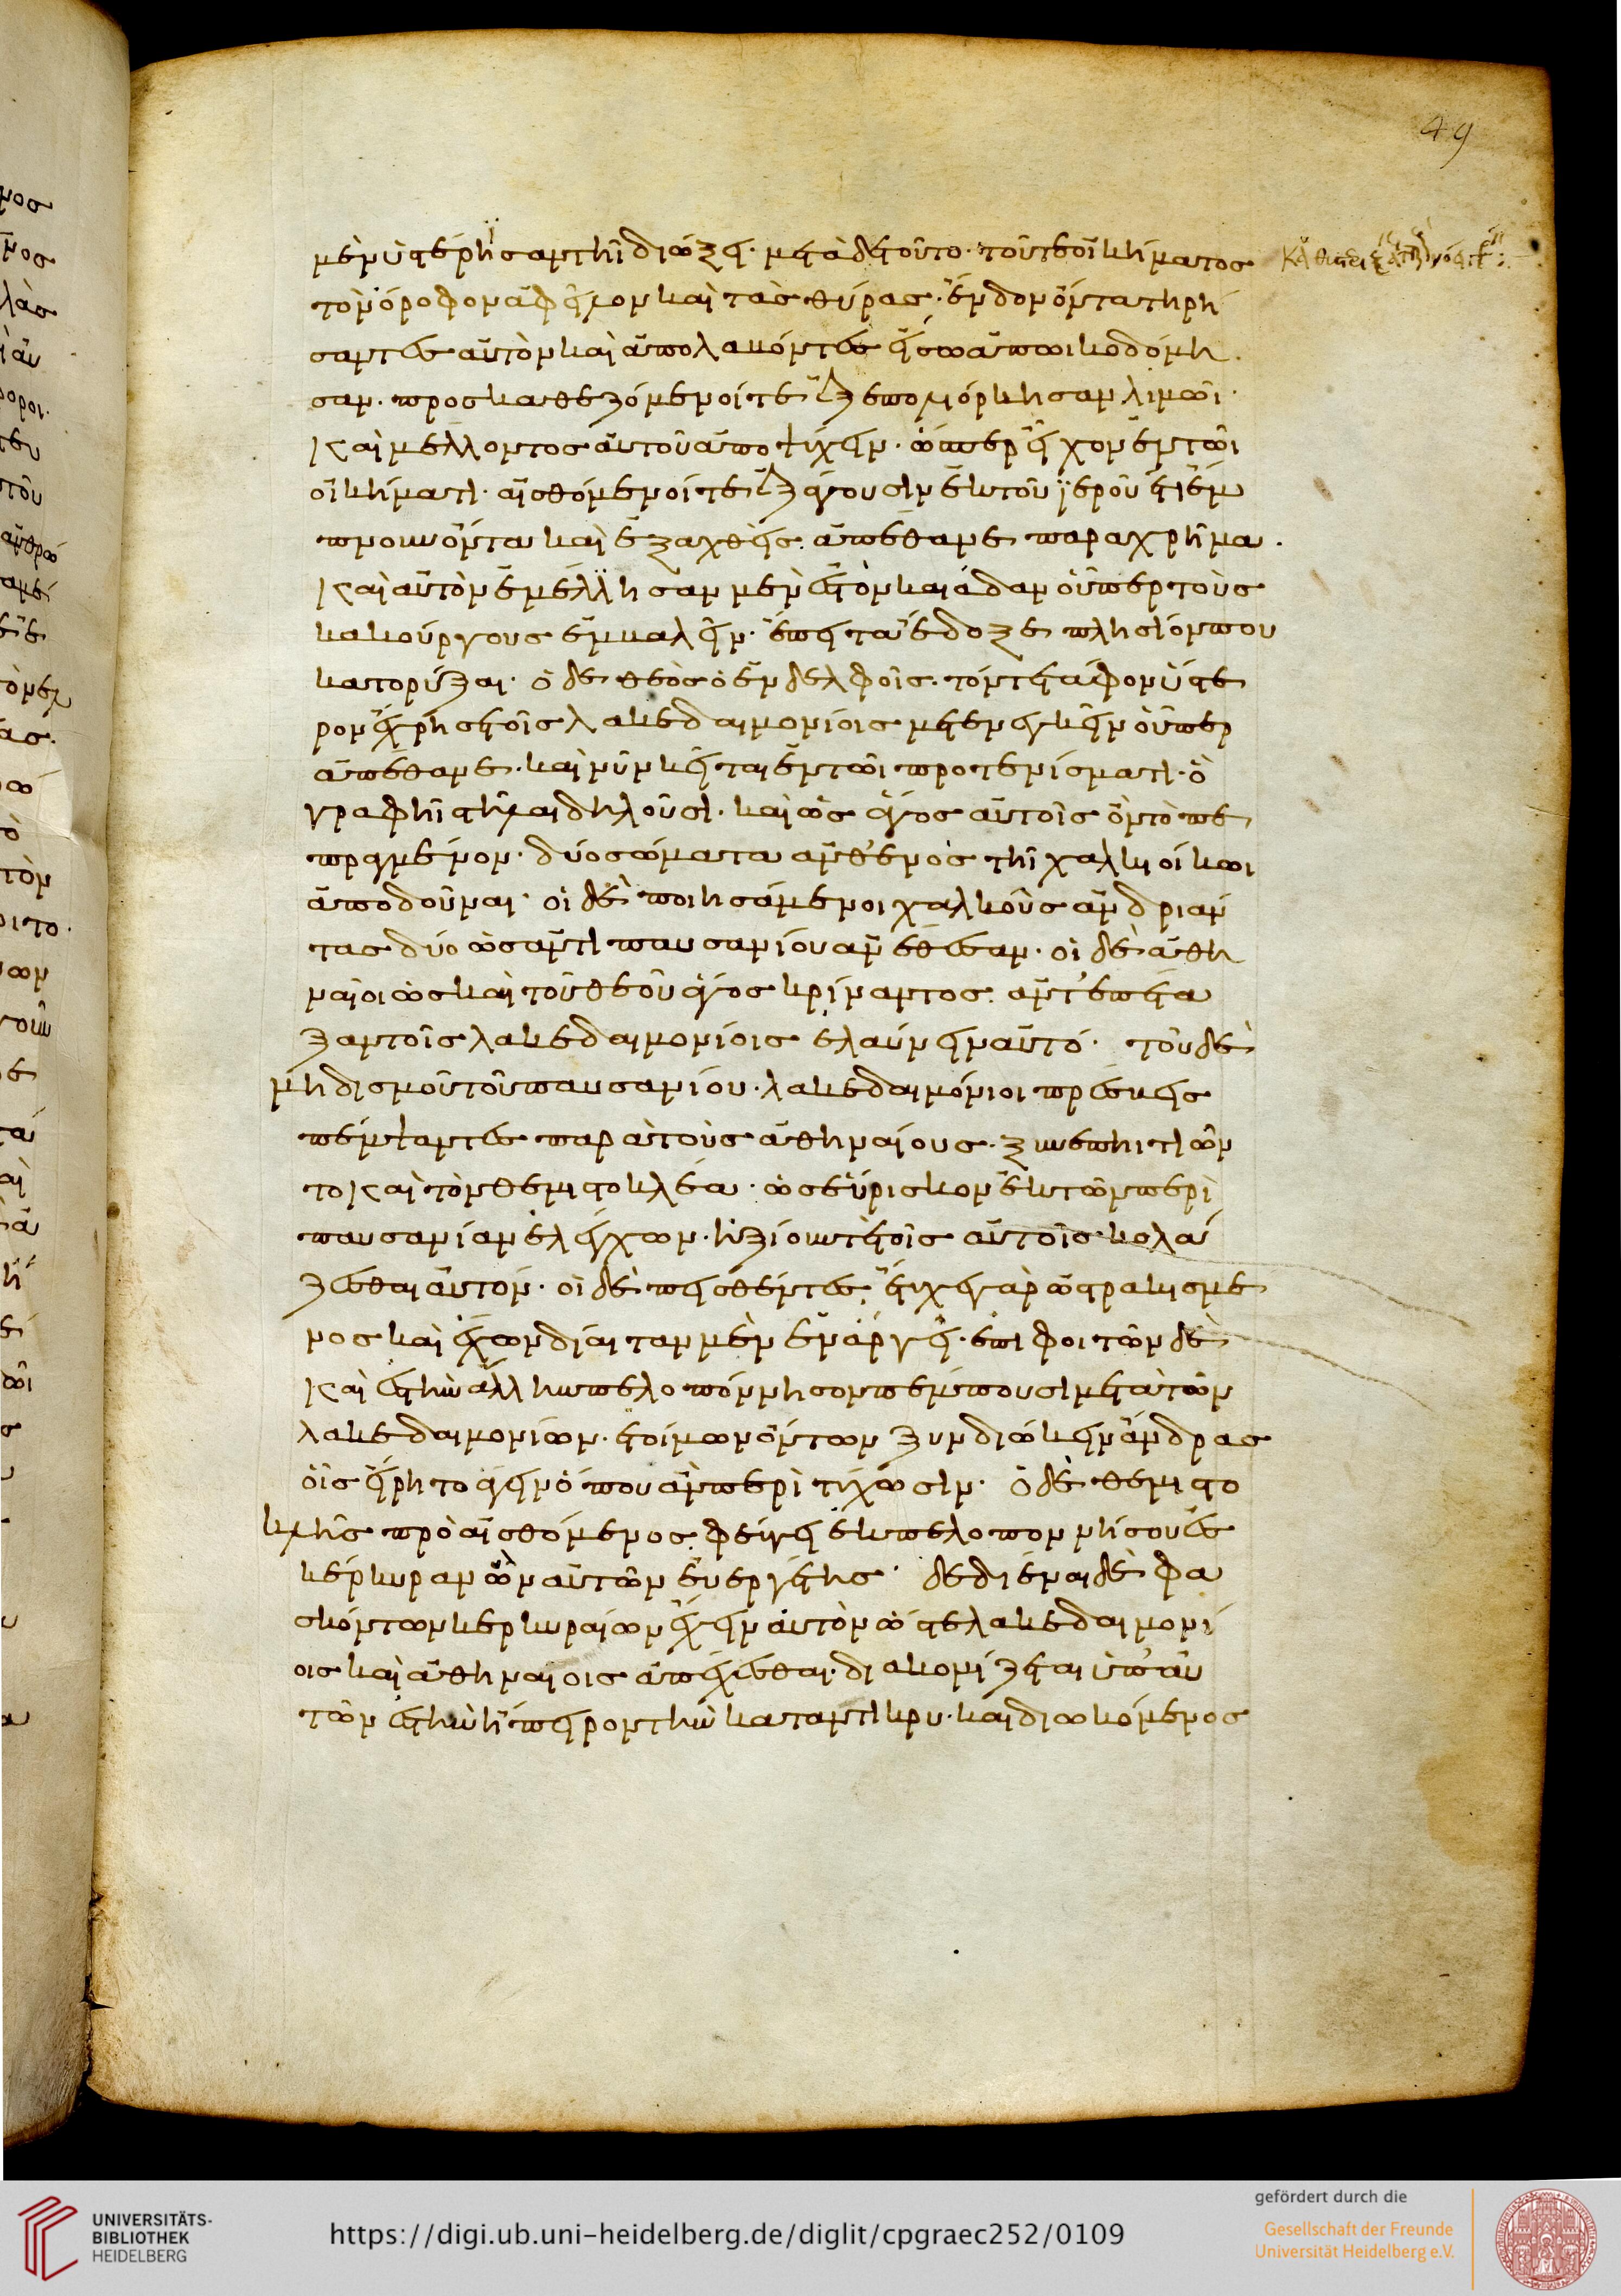 49
μὲν ὑστέρησαν τῆι διώξει· μετὰ δὲ τοῦτο· τοῦ τε οἰκήματος
τὸν ὄροφον ἀφεῖλον καὶ τὰς θύρας· ἔνδον ὄντα τηρή
σαντες αὐτὸν καὶ ἀπολαβόντες εἴσω ἀπωικοδόμη
σαν· προσκαθεζόμενοί τε ἐξεπολιόρκησαν λιμῶι·
καὶ μέλλοντος αὐτοῦ ἀποψύχειν· ὥσπερ εἶχον ἐν τῶι
οἰκήματι· αἰσθόμενοί τε ἐξάγουσιν ἐκ τοῦ ἱεροῦ ἔτι ἔμ
πνουν ὄντα καὶ ἐξαχθεὶς ἀπέθανε παραχρῆμα·
καὶ αὐτὸν ἐμέλλησαν μὲν ἐς τὸν καιάδαν οὗπερ τοὺς
κακούργους ἐμβαλεῖν· ἔπειτα ἔδοξε πλησίον που
κατορύξαι· ὁ δὲ θεὸς ὁ ἐν δελφοῖς· τόν τε τάφον ὕστε
ρον ἔχρησε τοῖς λακεδαιμονίοις μετενεγκεῖν οὗπερ
ἀπέθανε· καὶ νῦν κεῖται ἐν τῶι προτεμενίσματι· ὃ
γραφῆι στῆλαι δηλοῦσι· καὶ ὡς ἄγος αὐτοῖς ὂν τὸ πε
πραγμένον· δύο σώματα ἀνθ' ἑνὸς τῆι χαλκιοίκωι
ἀποδοῦναι· οἱ δὲ ποιησάμενοι χαλκοῦς ἀνδριάν
τας δύο ὡς ἀντὶ παυσανίου ἀνέθεσαν· οἱ δὲ ἀθη
ναῖοι ὡς καὶ τοῦ θεοῦ ἄγος κρίναντος· ἀντεπέτα
ξαν τοῖς λακεδαιμονίοις ἐλαύνειν αὐτό· τοῦ δὲ
μηδισμοῦ τοῦ παυσανίου· λακεδαιμόνιοι πρέσβεις
πέμψαντες παρὰ τοὺς ἀθηναίους· ξυνεπηιτιῶν
το καὶ τὸν θεμιστοκλέα· ὡς εὕρισκον ἐκ τῶν περὶ
παυσανίαν ἐλέγχων· ἠξίουν τε τοῖς αὐτοῖς κολά
ζεσθαι αὐτόν· οἱ δὲ πεισθέντες ἔτυχε γὰρ ὠστρακισμέ
νος καὶ ἔχων δίαιταν μὲν ἐν ἄργει· ἐπιφοιτῶν δὲ
καὶ ἐς τὴν ἄλλην πελοπόννησον πέμπουσι μετὰ τῶν
λακεδαιμονίων· ἑτοίμων ὄντων ξυνδιώκειν ἄνδρας
οἷς εἴρητο ἄγειν ὅπου ἂν περιτύχωσιν· ὁ δὲ θεμιστο
κλῆς προαισθόμενος φεύγει ἐκ πελοποννήσου ἐς
κέρκυραν ὢν αὐτῶν εὐεργέτης· δεδιέναι δὲ φα
σκόντων κερκυραίων ἔχειν αὐτὸν ὥστε λακεδαιμονί
οις καὶ ἀθηναίοις ἀπεχέσθαι· διακομίζεται ὑπ' αὐ
τῶν ἐς τὴν ἤπειρον τὴν καταντικρυ· καὶ διωκόμενος
UNIVERSITÄTS-
BIBLIOTHEK
HEIDELBERG
https://digi.ub.uni-heidelberg.de/diglit/cpgraec252/0109
gefördert durch die
Gesellschaft der Freunde
Universität Heidelberg e.V.